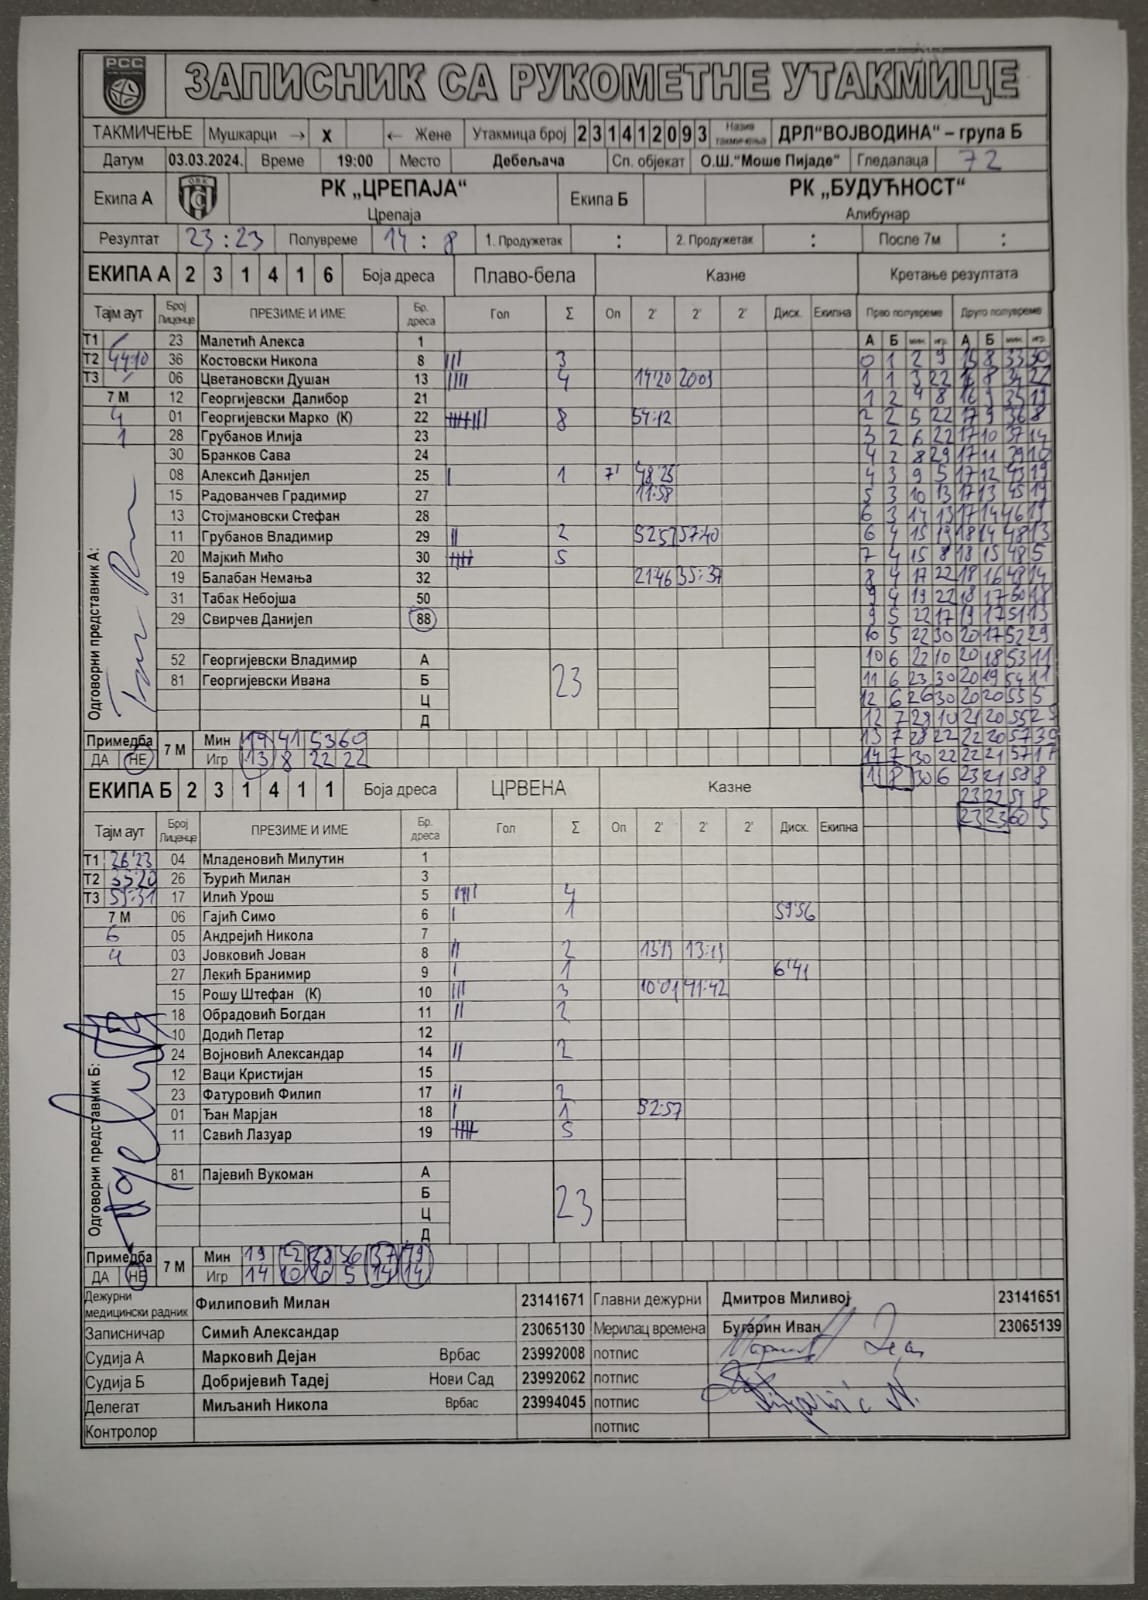 РСС
ЗАПИСНИК СА РУКОМЕТНЕ УТАКМИЦЕ
ТАКМИЧЕЊЕ Мушкарци → X ← Жене Утакмица број 2 3 1 4 1 2 0 9 3 Назив такмичења ДРЛ"ВОЈВОДИНА" – група Б
Датум 03.03.2024. Време 19:00 Место Дебељача Сп. објекат О.Ш."Моше Пијаде" Гледалаца 72
Екипа А РК „ЦРЕПАЈА" Црепаја Екипа Б РК „БУДУЋНОСТ" Алибунар
Резултат 23 : 23 Полувреме 14 : 8 1. Продужетак : 2. Продужетак : После 7м :
ЕКИПА А 2 3 1 4 1 6 Боја дреса Плаво-бела Казне Кретање резултата
Тајм аут Број Лиценце ПРЕЗИМЕ И ИМЕ Бр. дреса Гол Σ Оп 2' 2' 2' Диск. Екипна Прво полувреме Друго полувреме
Т1 / 23 Малетић Алекса 1 А Б мин. игр. А Б мин. игр.
Т2 44:10 36 Костовски Никола 8 III 3 0 1 2 9 15 8 33 30
Т3 / 06 Цветановски Душан 13 IIII 4 14:20 20:01 1 1 3 22
7 М 12 Георгијевски Далибор 21 1 2 4 8 16 9 35 19
4 01 Георгијевски Марко (К) 22 8 54:12 2 2 5 22 17 9 36 8
1 28 Грубанов Илија 23 3 2 6 22 17 10 37 14
30 Бранков Сава 24 4 2 8 29 17 11 39 10
08 Алексић Данијел 25 I 1 7' 48:25 4 3 9 5 17 12 43 19
15 Радованчев Градимир 27 11:58 5 3 10 13 17 13 45 19
13 Стојмановски Стефан 28 6 3 14 13 17 14 46 19
11 Грубанов Владимир 29 II 2 52:57 57:40 6 4 15 19 18 14 48 13
20 Мајкић Мићо 30 5 7 4 15 8 18 15 48 5
19 Балабан Немања 32 21:46 35:37 8 4 17 22 18 16 49 14
31 Табак Небојша 50 9 4 19 22 18 17 50 18
29 Свирчев Данијел 88 9 5 22 17 19 17 51 13
10 5 22 30 20 17 52 29
52 Георгијевски Владимир А 10 6 22 10 20 18 53 11
81 Георгијевски Ивана Б 23 11 6 23 30 20 19 54 11
Ц 12 6 26 30 20 20 55 5
Д 12 7 29 10 21 20 55 23
Одговорни представник А:
Примедба 7 М Мин 19 41 53 60 13 7 29 22 22 20 57 30
ДА НЕ Игр 13 8 22 22 14 7 30 22 22 21 57 17
ЕКИПА Б 2 3 1 4 1 1 Боја дреса ЦРВЕНА Казне 14 8 30 6 23 21 58 8
23 22 59 8
Тајм аут Број Лиценце ПРЕЗИМЕ И ИМЕ Бр. дреса Гол Σ Оп 2' 2' 2' Диск. Екипна 23 23 60 5
Т1 26:23 04 Младеновић Милутин 1
Т2 35:20 26 Ђурић Милан 3
Т3 59:31 17 Илић Урош 5 IIII 4
7 М 06 Гајић Симо 6 I 1 59:56
6 05 Андрејић Никола 7
4 03 Јовковић Јован 8 II 2 13:19 13:19
27 Лекић Бранимир 9 I 1 6:41
15 Рошу Штефан (К) 10 III 3 10:01 41:42
18 Обрадовић Богдан 11 II 2
10 Додић Петар 12
24 Војновић Александар 14 II 2
12 Ваци Кристијан 15
23 Фатуровић Филип 17 II 2
01 Ђан Марјан 18 I 1 52:57
11 Савић Лазуар 19 5
81 Пајевић Вукоман А
Б 23
Ц
Д
Одговорни представник Б:
Примедба 7 М Мин 19 22 28 36 37 49
ДА НЕ Игр 14 10 10 5 14 14
Дежурни медицински радник Филиповић Милан 23141671 Главни дежурни Дмитров Миливој 23141651
Записничар Симић Александар 23065130 Мерилац времена Бугарин Иван 23065139
Судија А Марковић Дејан Врбас 23992008 потпис
Судија Б Добријевић Тадеј Нови Сад 23992062 потпис
Делегат Миљанић Никола Врбас 23994045 потпис
Контролор потпис